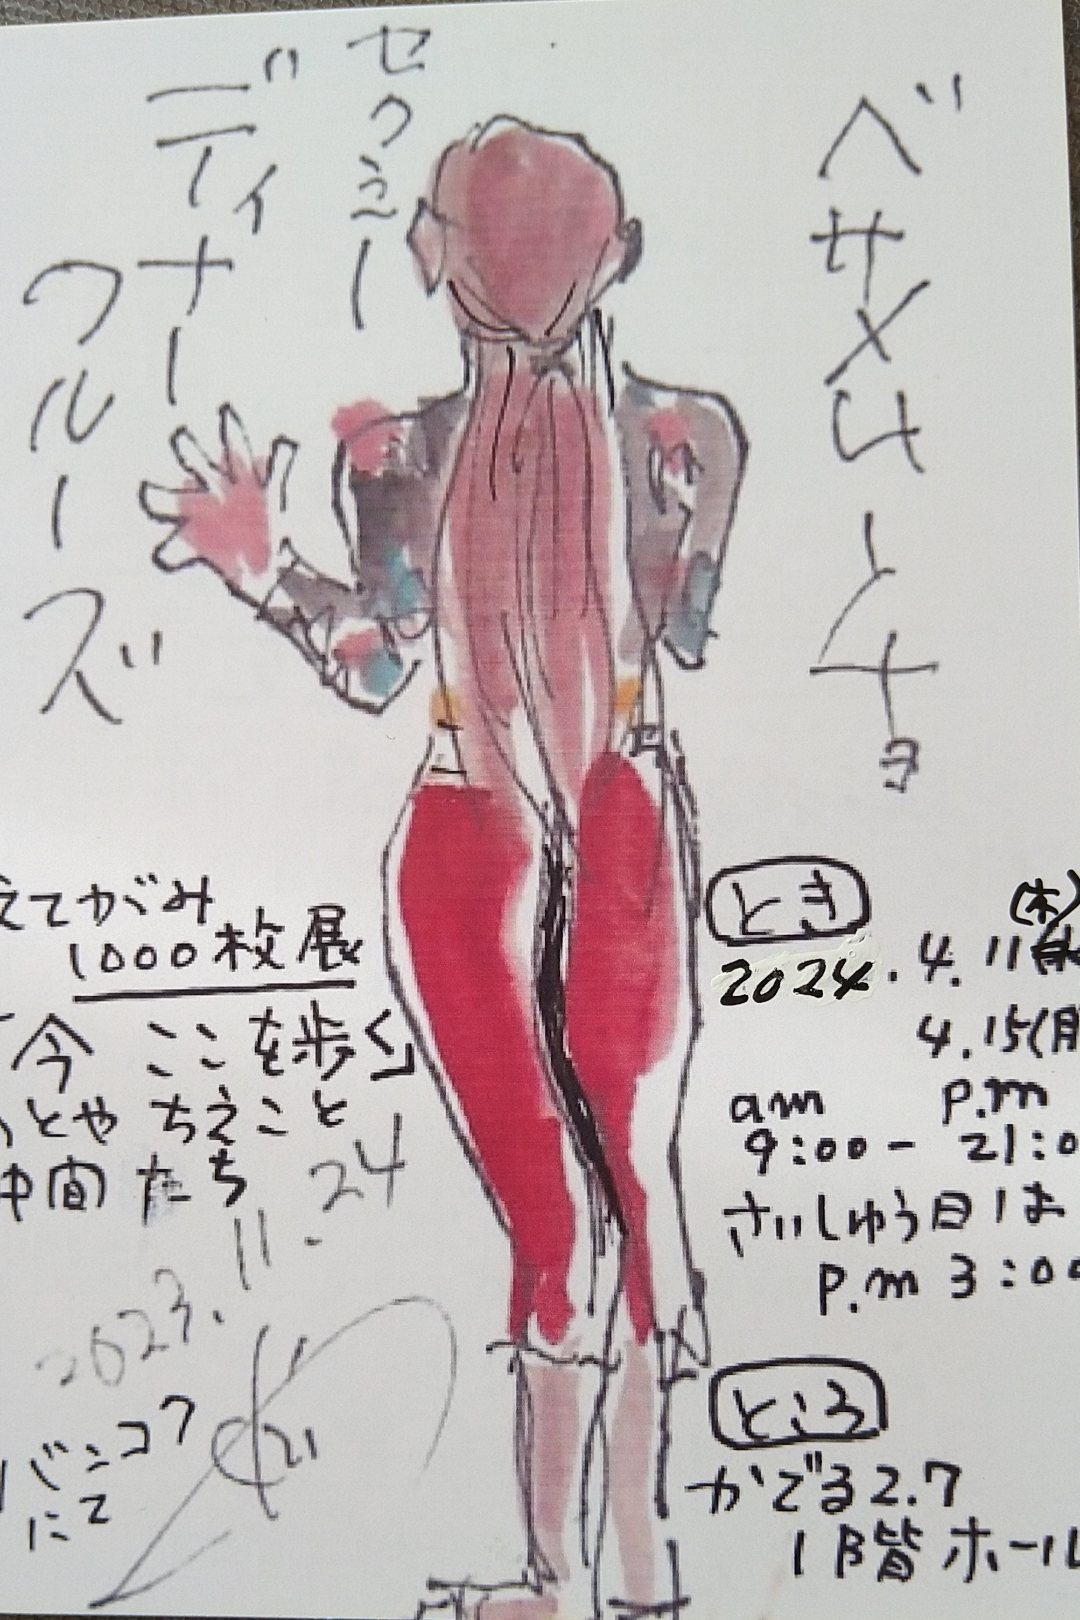 ベサメムーチョ
セクシー
ディナー
クルーズ
えてがみ
1000枚展
「今 ここを歩く」
ひとや ちえこと
仲間たち
2023.11.24
バンコク
にて
とき
2024.4.11(木)
4.15(月
am p.m
9:00- 21:0
さいしゅう日は
p.m 3:00
ところ
かでる2.7
1階ホール